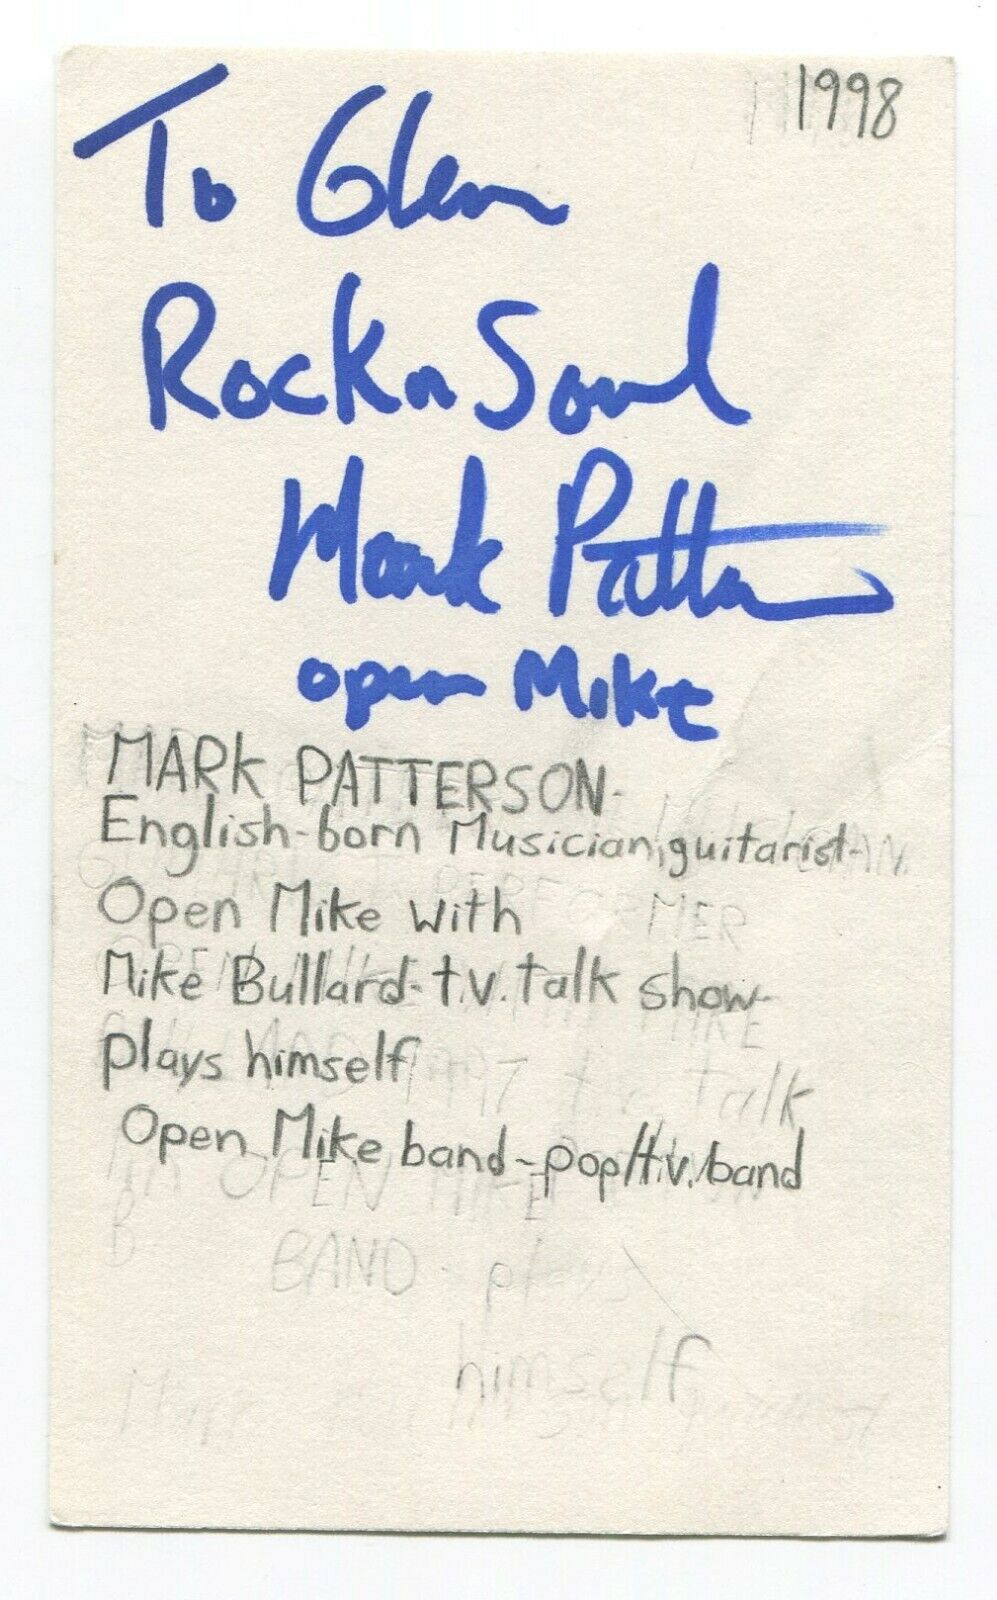 1998
To Glen
Rock n Soul
Mark Patterson
open Mike
MARK PATTERSON-
English-born Musician, guitarist-
Open Mike with
Mike Bullard- t.v. talk show-
plays himself
Open Mike band-pop/t.v. band
BAND - plays
himself